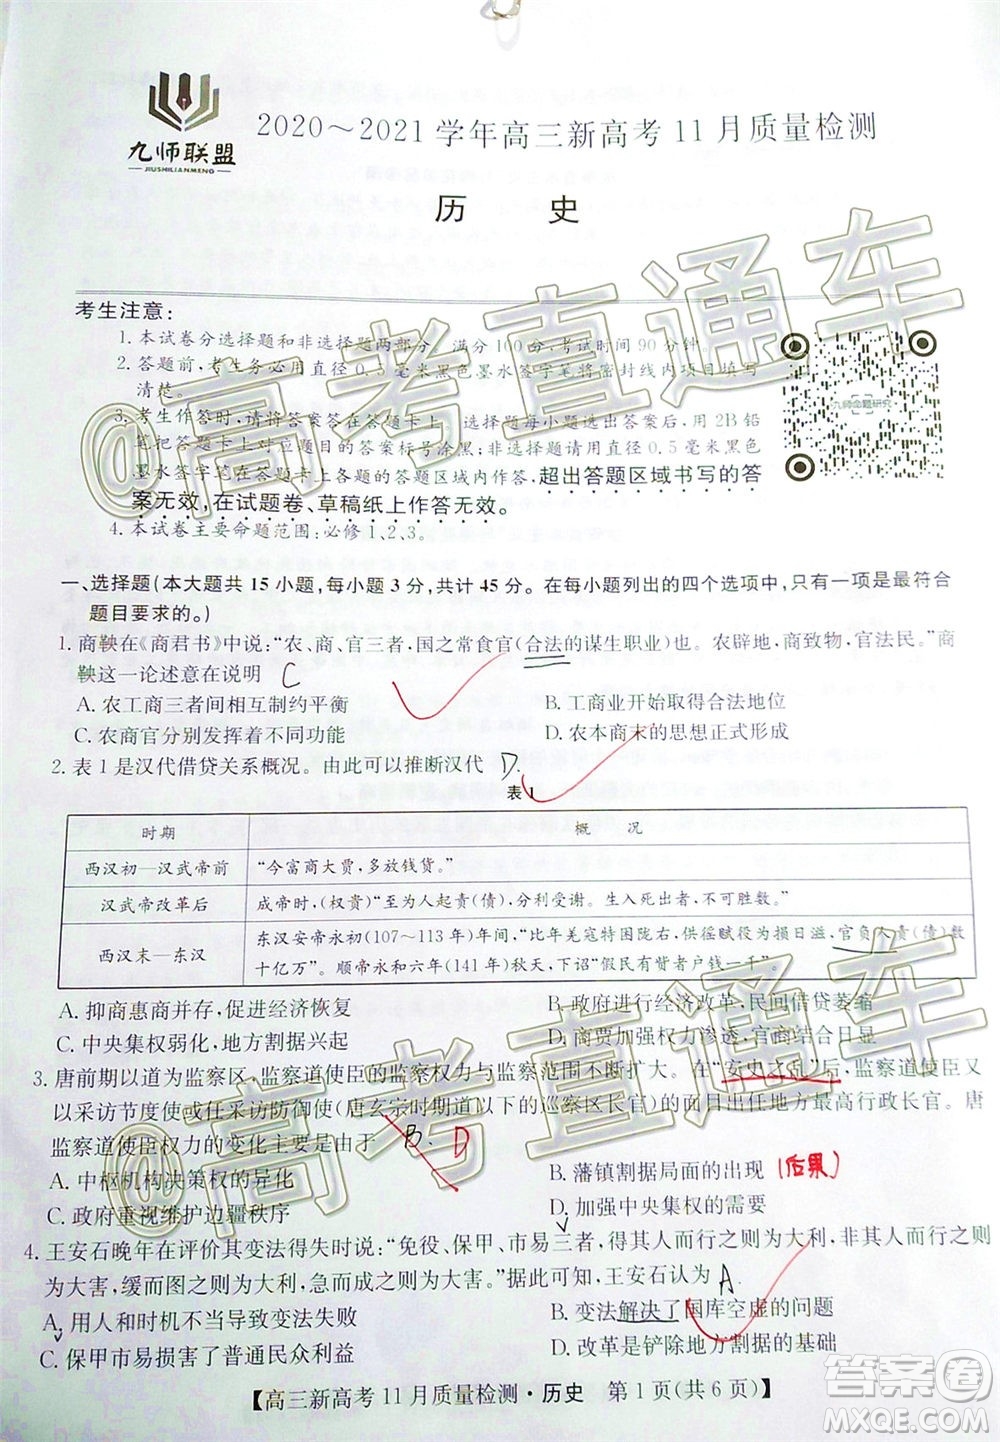 九师联盟
JIUSHILIANMENG
2020～2021学年高三新高考11月质量检测
历 史
考生注意：
1. 本试卷分选择题和非选择题两部分。满分100分，考试时间90分钟。
2. 答题前，考生务必用直径0.5毫米黑色墨水签字笔将密封线内项目填写
清楚。
3. 考生作答时，请将答案答在答题卡上。选择题每小题选出答案后，用2B铅
笔把答题卡上对应题目的答案标号涂黑；非选择题请用直径0.5毫米黑色
墨水签字笔在答题卡上各题的答题区域内作答，超出答题区域书写的答
案无效，在试题卷、草稿纸上作答无效。
4. 本试卷主要命题范围：必修1、2、3。
九师命题研究
一、选择题(本大题共15小题，每小题3分，共计45分。在每小题列出的四个选项中，只有一项是最符合
题目要求的。)
1. 商鞅在《商君书》中说：“农、商、官三者，国之常食官(合法的谋生职业)也。农辟地，商致物，官法民。”商
鞅这一论述意在说明 C
A. 农工商三者间相互制约平衡 B. 工商业开始取得合法地位
C. 农商官分别发挥着不同功能 D. 农本商末的思想正式形成
2. 表1是汉代借贷关系概况。由此可以推断汉代 D.
表1
时期 概 况
西汉初—汉武帝前 “今富商大贾，多放钱货。”
汉武帝改革后 成帝时，(权贵)“至为人起责(债)，分利受谢。生入死出者，不可胜数。”
西汉末—东汉 东汉安帝永初(107～113年)年间，“比年羌寇特困陇右，供徭赋役为损日滋，官负人责(债)数
十亿万”。顺帝永和六年(141年)秋天，下诏“假民有赀者户钱一千”
A. 抑商惠商并存，促进经济恢复 B. 政府进行经济改革，民间借贷萎缩
C. 中央集权弱化，地方割据兴起 D. 商贾加强权力渗透，官商结合日显
3. 唐前期以道为监察区，监察道使臣的监察权力与监察范围不断扩大。在“安史之乱”后，监察道使臣又
以采访节度使或采访防御使(唐玄宗时期道以下的巡察区长官)的面目出任地方最高行政长官。唐
监察道使臣权力的变化主要是由于 B. D
A. 中枢机构决策权的异化 B. 藩镇割据局面的出现 (后果)
C. 政府重视维护边疆秩序 D. 加强中央集权的需要
4. 王安石晚年在评价其变法得失时说：“免役、保甲、市易三者，得其人而行之则为大利，非其人而行之则
为大害，缓而图之则为大利，急而成之则为大害。”据此可知，王安石认为 A.
A. 用人和时机不当导致变法失败 B. 变法解决了国库空虚的问题
C. 保甲市易损害了普通民众利益 D. 改革是铲除地方割据的基础
【高三新高考11月质量检测·历史 第1页(共6页)】
@高考直通车
@高考直通车
答案圈
MXQE.COM